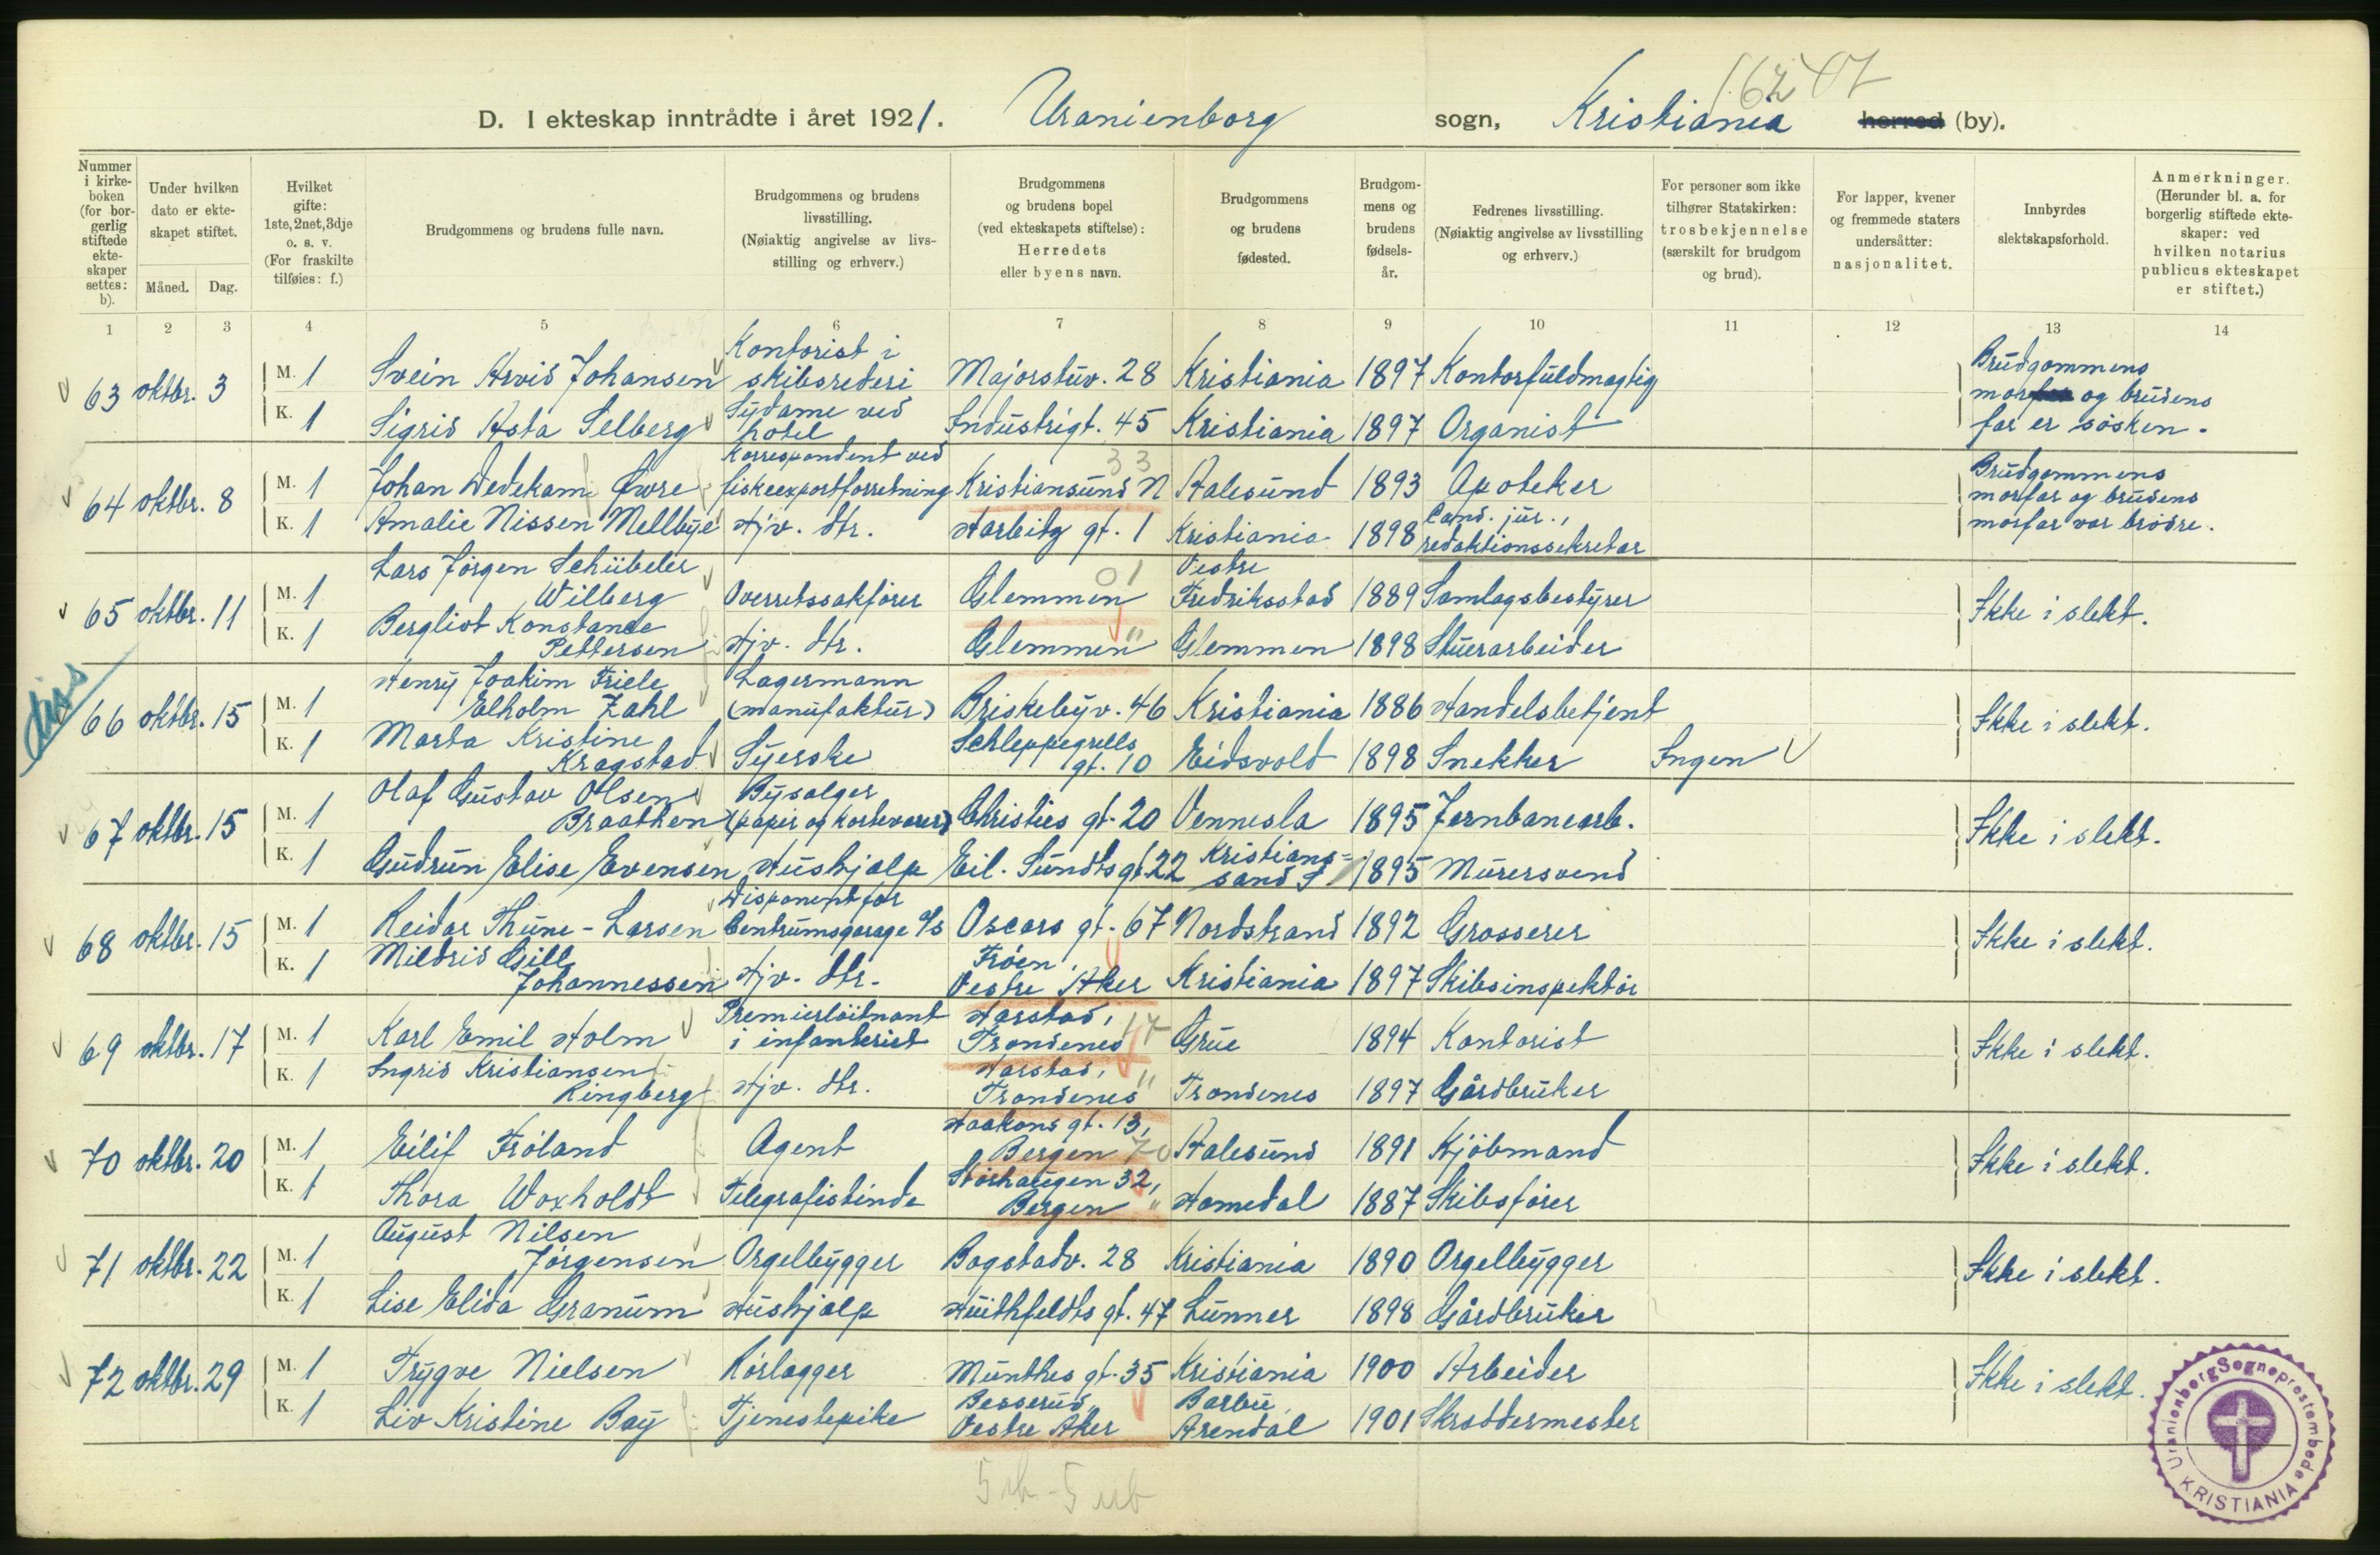 16247
D. I ekteskap inntrådte i året 1921. Uranienborg sogn, Kristiania herred (by).
Nummer i kirke-boken (for bor-gerlig stiftede ekte-skaper settes: b).
Under hvilken dato er ekte-skapet stiftet.
Måned. Dag.
Hvilket gifte: 1ste, 2net, 3dje o. s. v. (For fraskilte tilføies: f.)
Brudgommens og brudens fulle navn.
Brudgommens og brudens livsstilling. (Nøiaktig angivelse av livs-stilling og erhverv.)
Brudgommens og brudens bopel (ved ekteskapets stiftelse): Herredets eller byens navn.
Brudgommens og brudens fødested.
Brudgom-mens og brudens fødsels-år.
Fedrenes livsstilling. (Nøiaktig angivelse av livsstilling og erhverv.)
For personer som ikke tilhører Statskirken: trosbekjennelse (særskilt for brudgom og brud).
For lapper, kvener og fremmede staters undersåtter: nasjonalitet.
Innbyrdes slektskapsforhold.
Anmerkninger. (Herunder bl. a. for borgerlig stiftede ekte-skaper: ved hvilken notarius publicus ekteskapet er stiftet.)
1 2 3 4 5 6 7 8 9 10 11 12 13 14
63 oktbr. 3 M. 1 Svein Arvid Johansen Kontorist i skibsrederi Majorstuv. 28 Kristiania 1897 Kontorfuldmagtig Brudgommens mor og brudens far er søsken.
K. 1 Sigrid Asta Selberg Sydame ved hotel Industrigt. 45 Kristiania 1897 Organist
64 oktbr. 8 M. 1 Johan Dedekam Øwre Korrespondent ved fiskeexportforretning Kristiansund N 33 Aalesund 1893 Apoteker Brudgommens morfar og brudens morfar var brødre.
K. 1 Amalie Nissen Mellbye Hjv. dtr. Harbitz gt. 1 Kristiania 1898 Cand. jur., redaktionssekretær
65 oktbr. 11 M. 1 Lars Jørgen Schübeler Wilberg Overretssakfører Glemmen 01 Vestre Fredriksstad 1889 Samlagsbestyrer Ikke i slekt.
K. 1 Bergliot Konstance Pettersen Hjv. dtr. Glemmen " Glemmen 1898 Stuerarbeider
66 oktbr. 15 M. 1 Henry Joakim Friele Elholm Zahl Lagermann (manufaktur) Briskebyv. 46 Kristiania 1886 Handelsbetjent Ikke i slekt.
K. 1 Marta Kristine Kragstad Syerske Schleppegrells gt. 10 Eidsvold 1898 Snekker Ingen
67 oktbr. 15 M. 1 Olaf Gustav Olsen Braathen Bysælger (papir og kortevarer) Christies gt. 20 Vennesla 1895 Jernbanearb. Ikke i slekt.
K. 1 Gudrun Elise Evensen Hushjælp Eil. Sundts gt. 22 Kristianssand S 1895 Murersvend
68 oktbr. 15 M. 1 Reidar Thune-Larsen Disponent for Centrumsgarage A/S Oscars gt. 67 Nordstrand 1892 Grosserer Ikke i slekt.
K. 1 Mildrid Gill Johannessen Hjv. dtr. Frøen, Vestre Aker Kristiania 1897 Skibsinspektør
69 oktbr. 17 M. 1 Karl Emil Holm Premierløitnant i infanteriet Harstad, Trondenes 17 Grue 1894 Kontorist Ikke i slekt.
K. 1 Ingrid Kristiansen Ringberg Hjv. dtr. Harstad, Trondenes " Trondenes 1897 Gårdbruker
70 oktbr. 20 M. 1 Eilif Frøland Agent Haakons gt. 13, Bergen 70 Aalesund 1891 Kjøbmand Ikke i slekt.
K. 1 Thora Woxholdt Telegrafistinde Storhaugen 32, Bergen " Homedal 1887 Skibsfører
71 oktbr. 22 M. 1 August Nilsen Jørgensen Orgelbygger Bogstadv. 28 Kristiania 1890 Orgelbygger Ikke i slekt.
K. 1 Lise Elida Granum Hushjælp Huithfeldts gt. 47 Lunner 1898 Gårdbruker
72 oktbr. 29 M. 1 Trygve Nielsen Rørlægger Munthes gt. 35 Kristiania 1900 Arbeider Ikke i slekt.
K. 1 Liv Kristine Bay Tjenestepike Besserud, Vestre Aker Barbu, Arendal 1901 Skræddermester
5 ib - 5 ub
Uranienborg Sogneprestembede KRISTIANIA